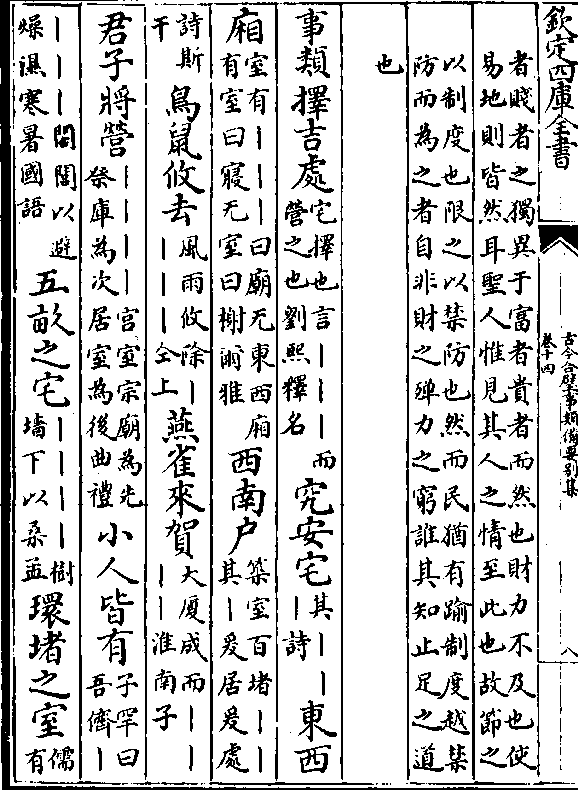 欽定四庫全書
古今合璧事類備要別集
卷十四
八
者賤者之獨異于富者貴者而然也財力不及也使
易地則皆然耳聖人惟見其人之情至此也故節之
以制度也限之以禁防也然而民猶有踰制度越禁
防而為之者自非財之殫力之窮誰其知止足之道
也
事類擇吉處宅擇也言｜｜｜而營之也劉熙釋名究安宅其｜｜｜詩東西
廂室有｜｜｜曰廟无東西廂有室曰寢无室曰榭爾雅西南户築室百堵｜｜其｜爰居爰處
詩斯干鳥鼠攸去風雨攸除｜｜｜｜仝上燕雀來賀大厦成而｜｜｜｜淮南子
君子將營｜｜｜｜宮室宗廟為先祭庫為次居室為後曲禮小人皆有子罕曰吾儕｜
｜｜｜闔閭以避燥濕寒暑國語五畝之宅｜｜｜｜樹墻下以桑孟環堵之室儒有